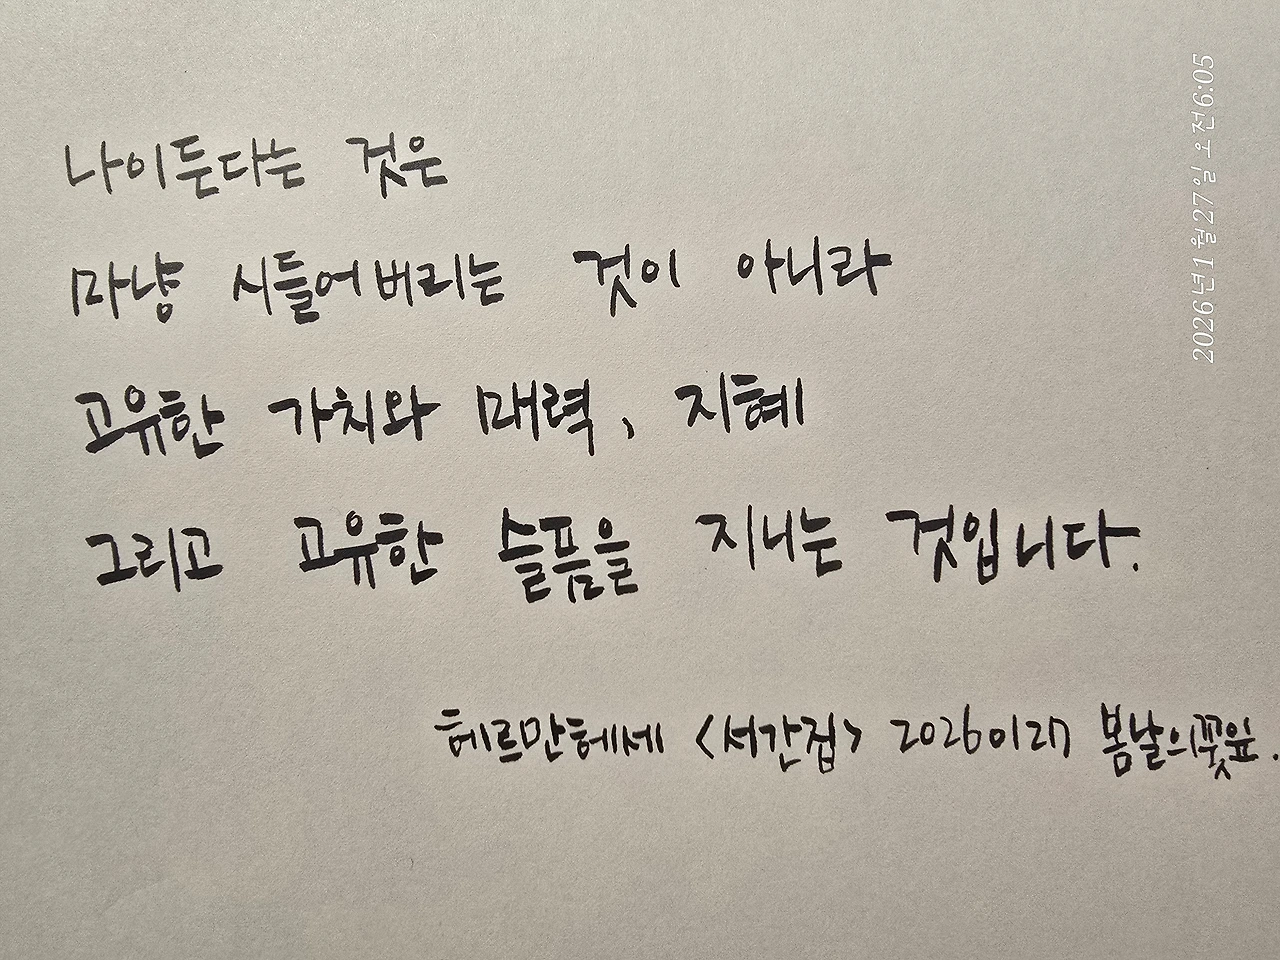 나이든다는 것은
마냥 시들어버리는 것이 아니라
고유한 가치와 매력, 지혜
그리고 고유한 슬픔을 지니는 것입니다.
헤르만헤세 <서간집> 20260127 봄날의꽃잎.
2026년 1월 27일 오전 6:05